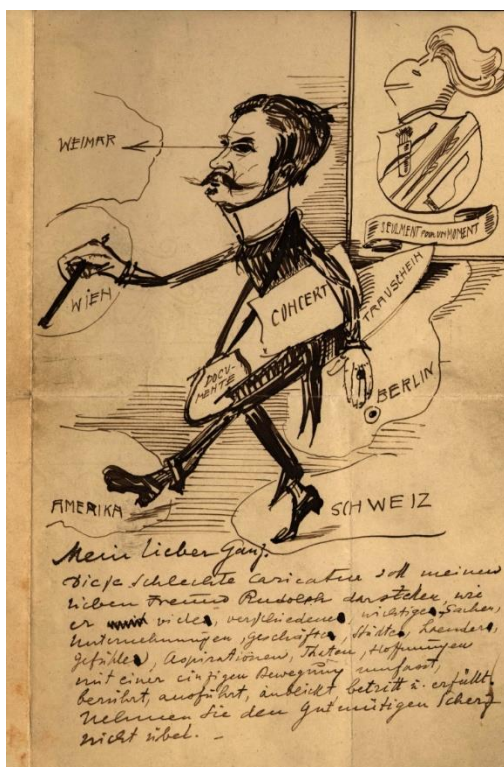 WEIMAR
SEULMENT POUR UN MOMENT
WIEN
CONCERT
TRAUSCHEIN
DOCU-
MENTE
BERLIN
AMERIKA
SCHWEIZ
Mein lieber Ganz.
Diese schlechte Caricature soll meinen
lieben Freund Rudolph darstellen, wie
er viele, verschiedene, wichtige Sachen,
Unternehmungen, Geschäfte, Städte, Laender,
Gefühle, Aspirationen, Thaten, Hoffnungen
mit einer einzigen Bewegung umfasst,
berührt, ausführt, anblickt betritt u. erfüllt.
Nehmen Sie den gutmütigen Scherz
nicht übel. –